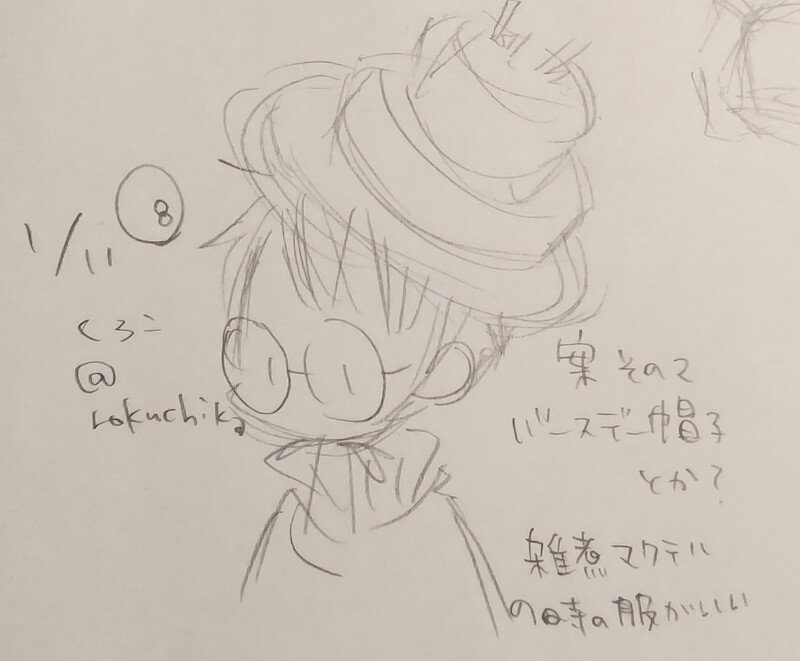 1/11
8
くろこ
@
rokuchika
案その2
バースデー帽子
とか?
雑煮マクテル
の時の服がいい